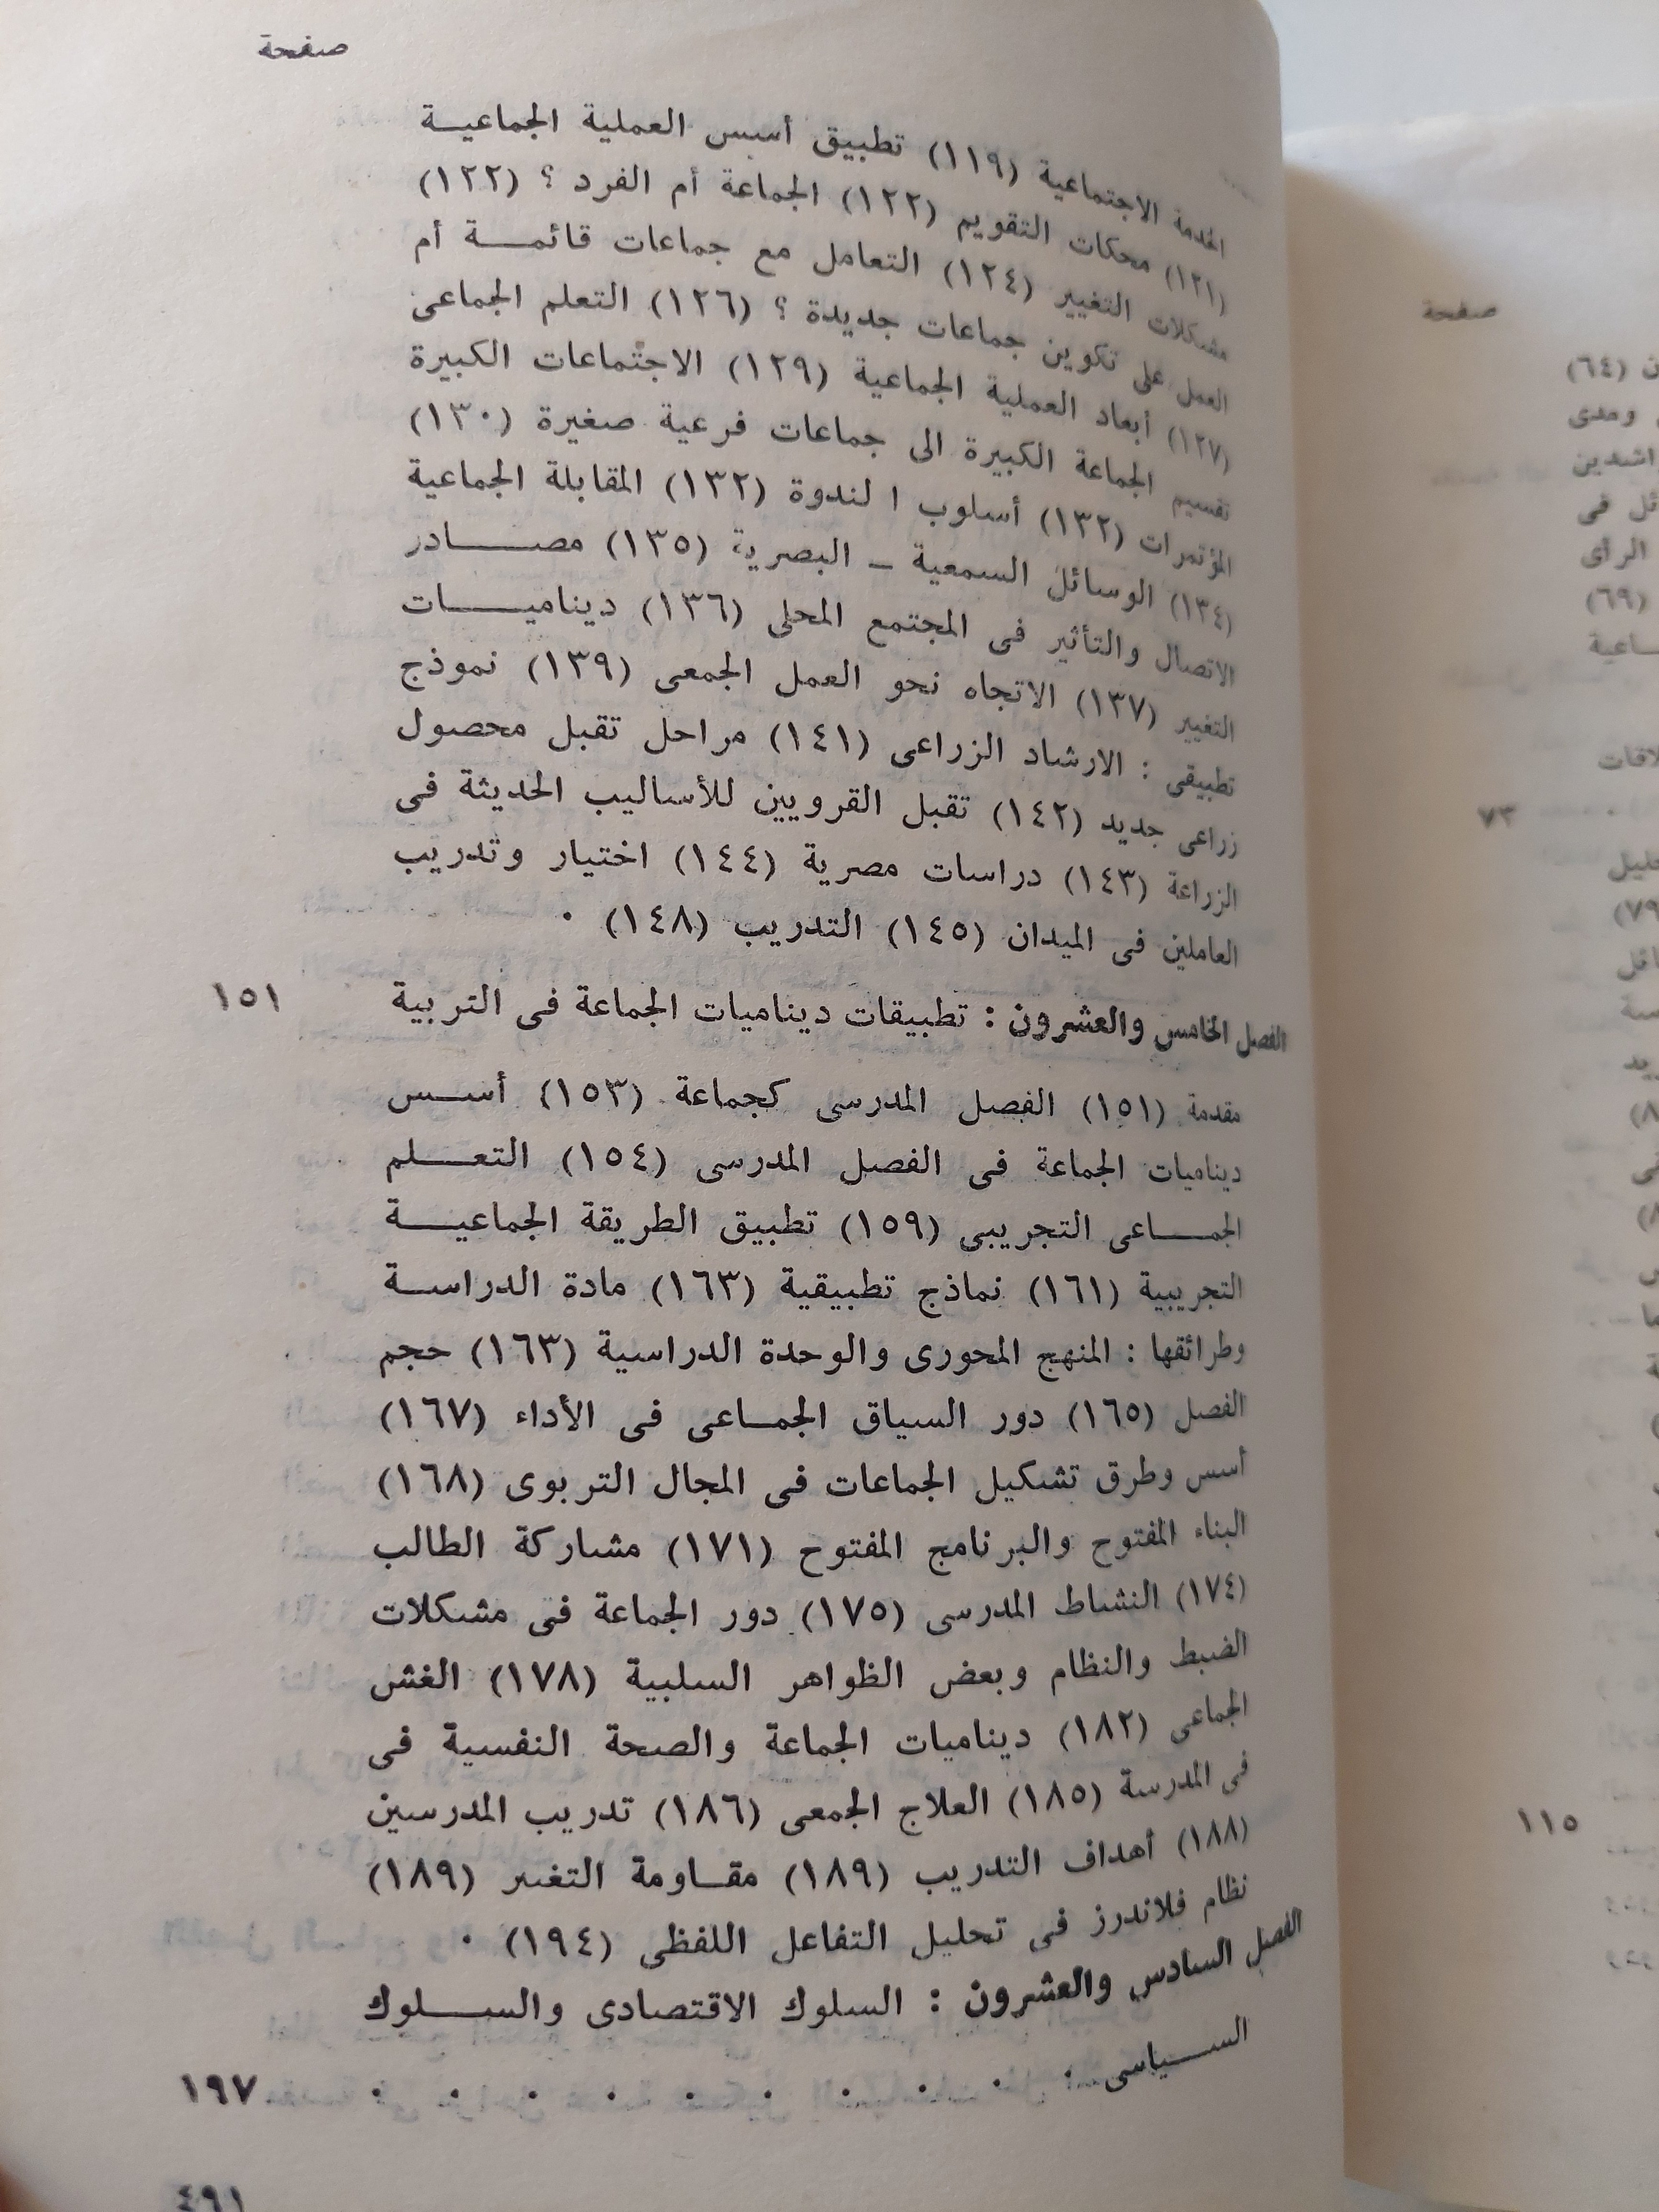 صفحة
الخدمة الاجتماعية (١١٩) تطبيق أسس العملية الجماعيـة
(١٢١) محكات التقويم (١٢٢) الجماعة أم الفرد ؟ (١٢٢)
مشكلات التغيير (١٢٤) التعامل مع جماعات قائمـة أم
العمل على تكوين جماعات جديدة ؟ (١٢٦) التعلم الجماعى
(١٢٧) أبعاد العملية الجماعية (١٢٩) الاجتماعات الكبيرة
تقسيم الجماعة الكبيرة الى جماعات فرعية صغيرة (١٣٠)
المؤتمرات (١٣٢) أسلوب ا لندوة (١٣٢) المقابلة الجماعية
(١٣٤) الوسائل السمعية ــ البصرية (١٣٥) مصـادر
الاتصال والتأثير فى المجتمع المحلى (١٣٦) ديناميـات
التغيير (١٣٧) الاتجاه نحو العمل الجمعى (١٣٩) نموذج
تطبيقى : الارشاد الزراعى (١٤١) مراحل تقبل محصول
زراعى جديد (١٤٢) تقبل القرويين للأساليب الحديثة فى
الزراعة (١٤٣) دراسات مصرية (١٤٤) اختيار وتدريب
العاملين فى الميدان (١٤٥) التدريب (١٤٨) ٠
الفصل الخامس والعشرون : تطبيقات ديناميات الجماعة فى التربية ١٥١
مقدمة (١٥١) الفصل المدرسى كجماعة (١٥٣) أسـس
ديناميات الجماعة فى الفصل المدرسى (١٥٤) التعـلم
الجمـاعى التجريبى (١٥٩) تطبيق الطريقة الجماعيـة
التجريبية (١٦١) نماذج تطبيقية (١٦٣) مادة الدراسـة
وطرائقها : المنهج المحورى والوحدة الدراسية (١٦٣) حجم
الفصل (١٦٥) دور السياق الجمـاعى فى الأداء (١٦٧)
أسس وطرق تشكيل الجماعات فى المجال التربوى (١٦٨)
البناء المفتوح والبرنامج المفتوح (١٧١) مشاركة الطالب
(١٧٤) النشاط المدرسى (١٧٥) دور الجماعة فى مشكلات
الضبط والنظام وبعض الظواهر السلبية (١٧٨) الغش
الجماعى (١٨٢) ديناميات الجماعة والصحة النفسية فى
فى المدرسة (١٨٥) العلاج الجمعى (١٨٦) تدريب المدرسين
(١٨٨) أهداف التدريب (١٨٩) مقـاومة التغير (١٨٩)
نظام فلاندرز فى تحليل التفاعل اللفظى (١٩٤) ٠
الفصل السادس والعشرون : السلوك الاقتصادى والسـلوك
السـياسى ٠ ٠ ٠ ٠ ٠ ٠ ٠ ٠ ٠ ٠ ١٩٧
٤٩١
صفحة
(٦٤)
ومدى
فى
الرأى
(٦٩)
٧٣
١١٥